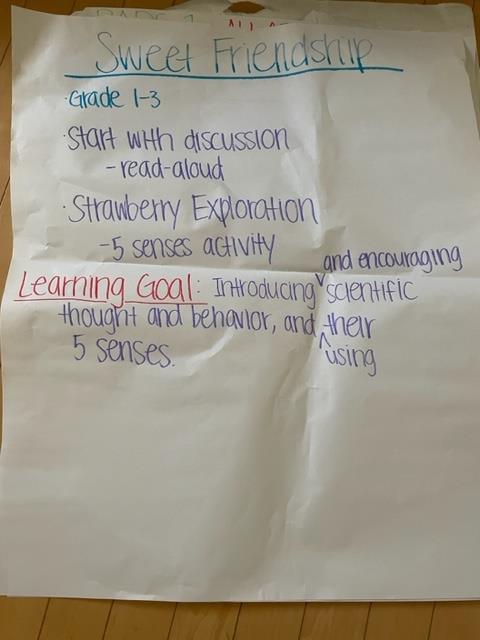 Sweet Friendship
·Grade 1-3
·Start with discussion
-read-aloud
·Strawberry Exploration
-5 senses activity
and encouraging
Learning Goal: Introducing scientific
thought and behavior, and their
using
5 senses.